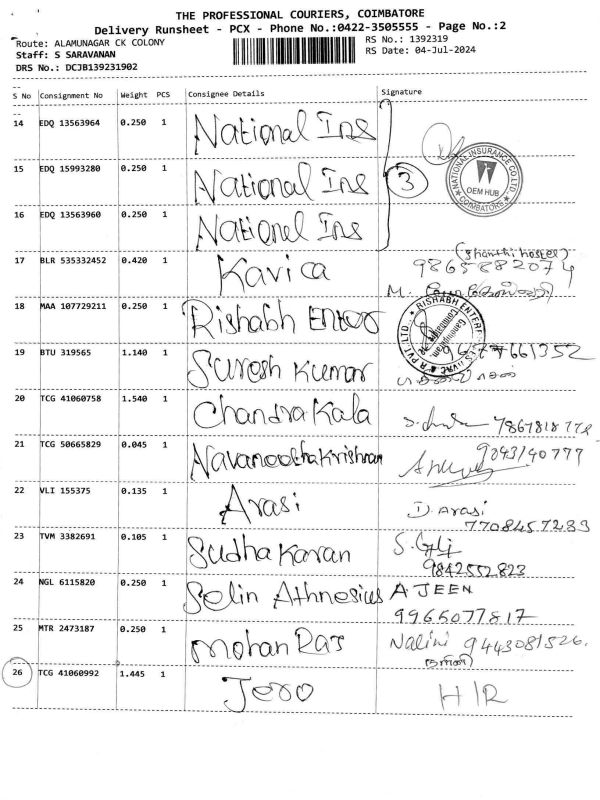 THE PROFESSIONAL COURIERS, COIMBATORE
Delivery Runsheet - PCX - Phone No.:0422-3505555 - Page No.:2
Route: ALAMUNAGAR CK COLONY
RS No.: 1392319
Staff: S SARAVANAN
RS Date: 04-Jul-2024
DRS No.: DCJB139231902
S No Consignment No Weight PCS Consignee Details Signature
14 EDQ 13563964 0.250 1 National Ins
15 EDQ 15993280 0.250 1 National Ins 3
NATIONAL INSURANCE CO.LTD. OEM HUB COIMBATORE
16 EDQ 13563960 0.250 1 National Ins
17 BLR 535332452 0.420 1 Kavica (Shanthi hostel)
9865882074
M.
18 MAA 107729211 0.250 1 Rishabh Enter
19 BTU 319565 1.140 1 Suresh Kumar
20 TCG 41060758 1.540 1 Chandra Kala
21 TCG 50665829 0.045 1 Navaneethakrishnan 9043140777
22 VLI 155375 0.135 1 Arasi D. Arasi
7708457233
23 TVM 3382691 0.105 1 Sudha Karan
9842552823
24 NGL 6115820 0.250 1 Selin Athnesius AJEEN
9965077817
25 MTR 2473187 0.250 1 Mohan Raj Nalini 9443081526.
26 TCG 41060992 1.445 1 Jero H/R